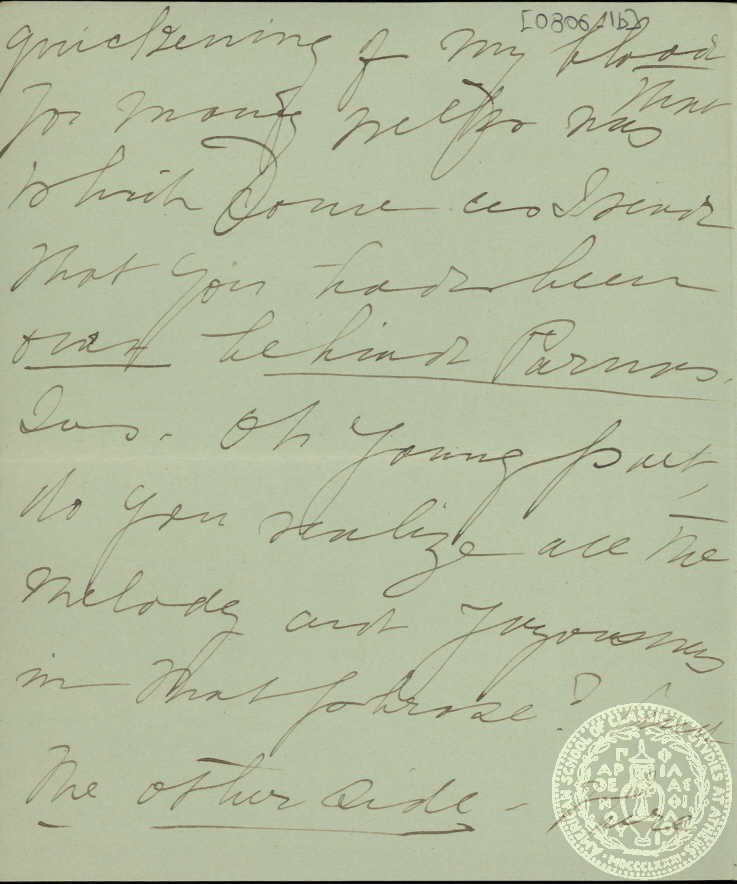 [0306 11b]
quickening of my blood
for many weeks was that
which come as I read
that you had been
over behind Parnas.
sus. Oh young poet,
do you realize all the
melody and joyousness
in that phrase?
The other side -
AMERICAN SCHOOL OF CLASSICAL STUDIES AT ATHENS
ΠΑΡΘΕΝΟΥ ΦΙΛΑΣ ΦΙΛΑΙ
MDCCCLXXXI